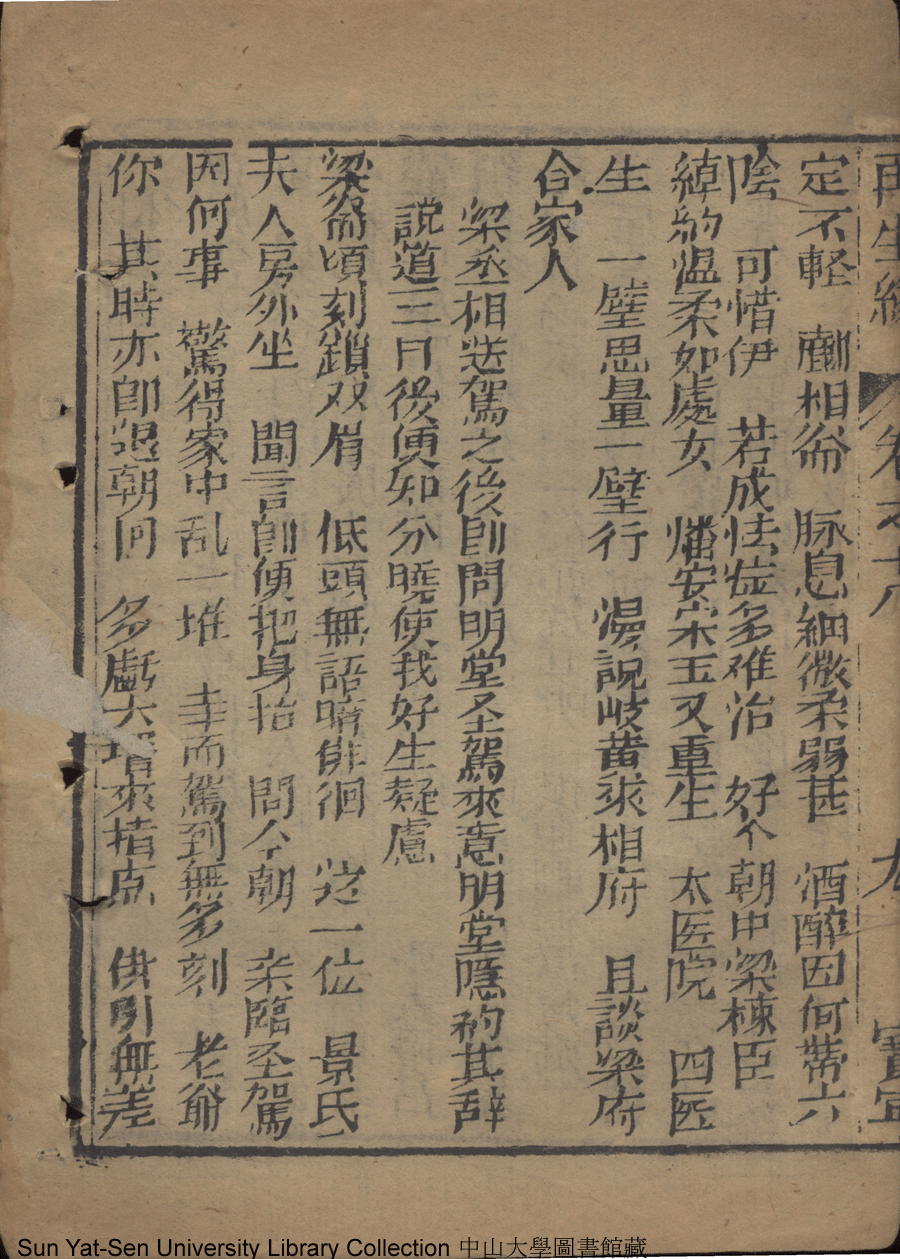 再生緣 卷之十八 九 寳寧
定不輕 酈相爺 脉息細微柔弱甚 酒醉因何帶六
陰 可惜伊 若成怯症多难治 好个朝中梁棟臣
綽約温柔如處女 潘安宋玉又重生 太医院 四医
生 一壁思量一壁行 漫說岐黄來相府 且談梁府
合家人
梁丞相送駕之後即問明堂圣駕來意明堂隱約其辞
說道三日後便知分曉使我好生疑慮
梁爺頃刻鎖双眉 低頭無語暗徘徊 这一位 景氏
夫人房外坐 聞言即便把身抬 問今朝 亲臨圣駕
因何事 驚得家中乱一堆 幸而駕到無多刻 老爺
你 其時亦即退朝回 多虧大壻來指点 供引無差
Sun Yat-Sen University Library Collection 中山大學圖書館藏